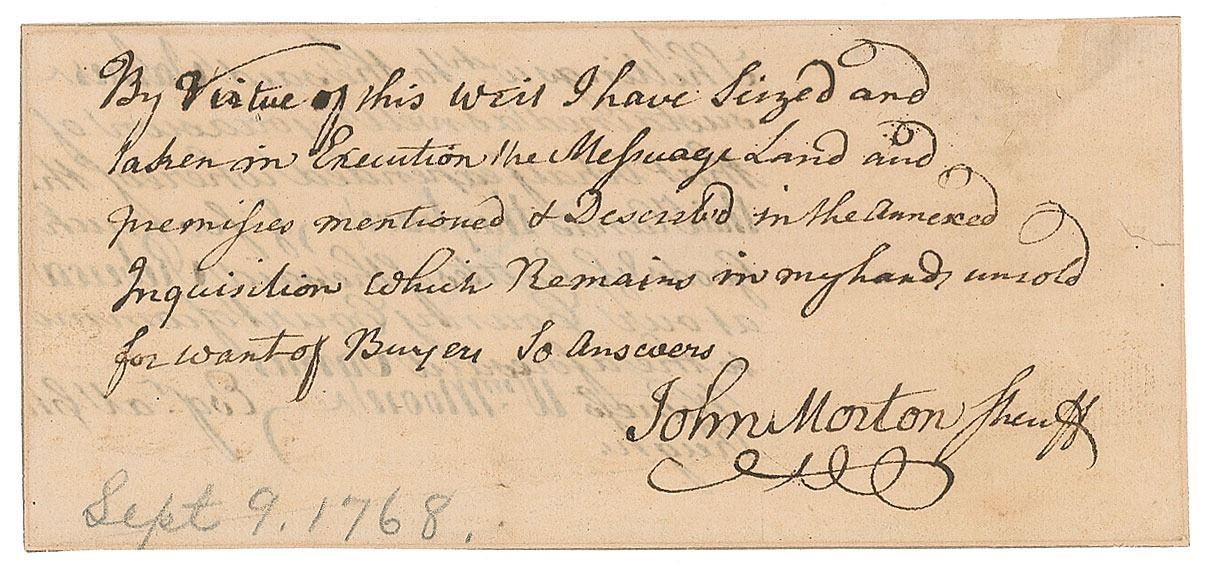 By Virtue of this Writ I have Seized and
taken in Execution the Messuage Land and
premisses mentioned & Describ'd in the Annexed
Inquisition Which Remains in my hands unsold
for want of Buyers So Answers
John Morton Sheriff
Sept 9. 1768.